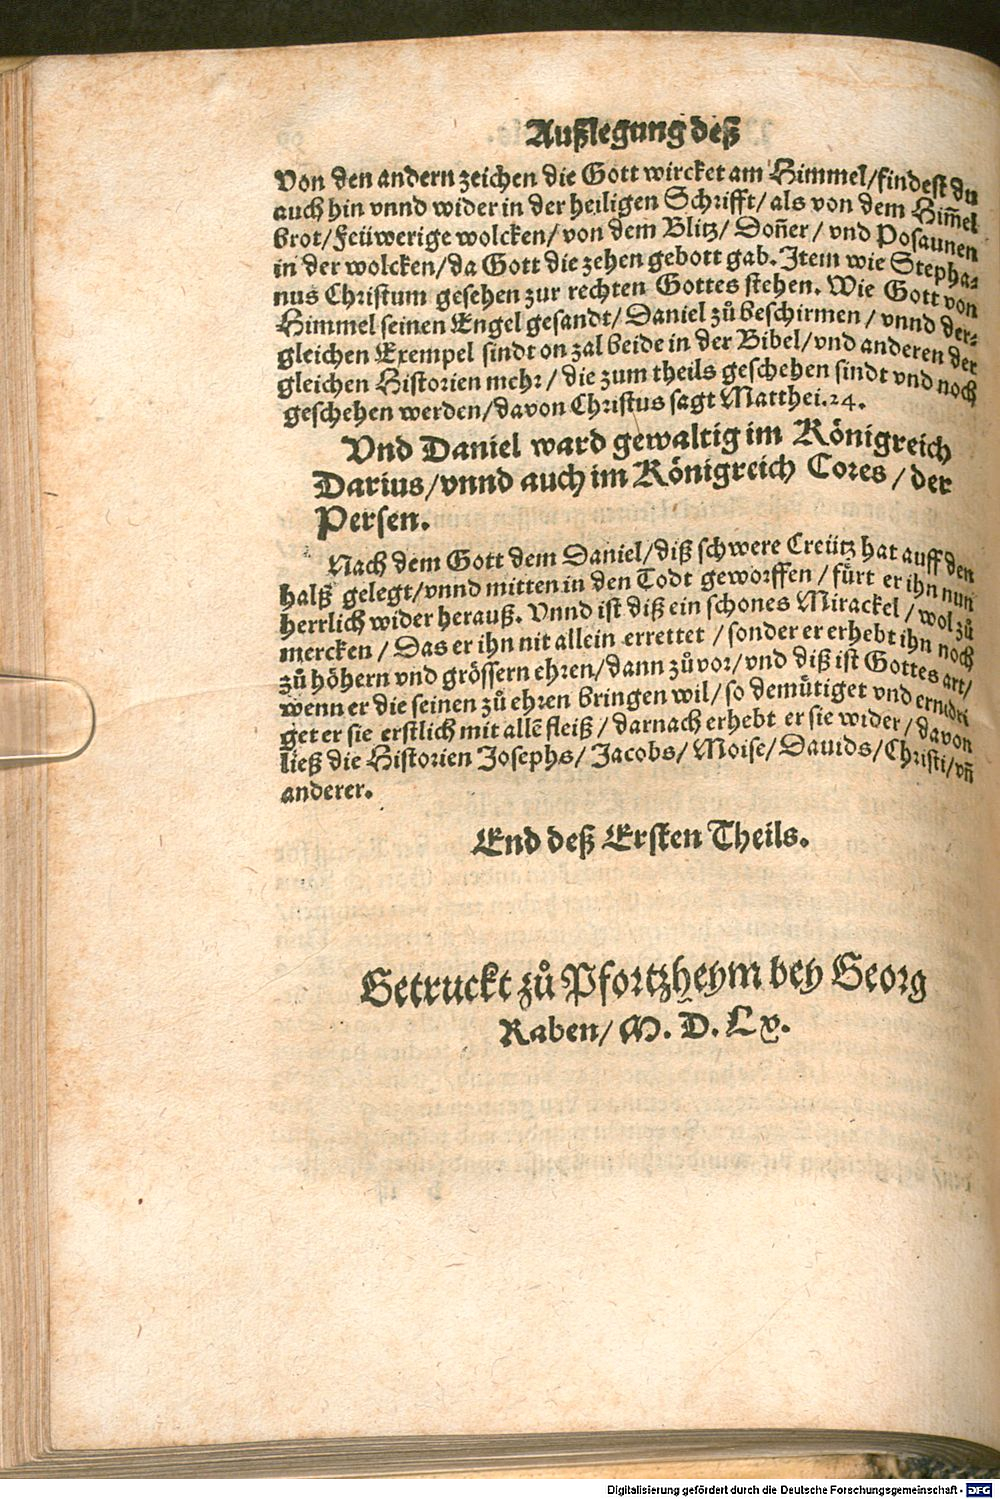 Außlegung deß
Von den andern zeichen die Gott wircket am Himmel/findest du
auch hin vnnd wider in der heiligen Schrifft/ als von dem Him̃el
brot/Feüwerige wolcken/von dem Blitz/ Doñer/ vnd Posaunen
in der wolcken/da Gott die zehen gebott gab. Item wie Stepha-
nus Christum gesehen zur rechten Gottes stehen. Wie Gott von
Himmel seinen Engel gesandt/ Daniel zů beschirmen/ vnnd der-
gleichen Exempel sindt on zal beide in der Bibel/vnd anderen der
gleichen Historien mehr/ die zum theils geschehen sindt vnd noch
geschehen werden/davon Christus sagt Matthei.24.
Vnd Daniel ward gewaltig im Königreich
Darius/vnnd auch im Königreich Cores/ der
Persen.
Nach dem Gott dem Daniel/diß schwere Creütz hat auff den
halß gelegt/vnnd mitten in den Todt geworffen/ fürt er ihn nun
herrlich wider herauß. Vnnd ist diß ein schones Mirackel/ wol zů
mercken/ Das er ihn nit allein errettet/ sonder er erhebt ihn noch
zů höhern vnd grössern ehren/dann zůvor/vnd diß ist Gottes art/
wenn er die seinen zů ehren bringen wil/ so demütiget vnd ernidri
get er sie erstlich mit allẽ fleiß/ darnach erhebt er sie wider/ davon
ließ die Historien Josephs/ Jacobs/ Moise/ Dauids/ Christi/vñ
anderer.
End deß Ersten Theils.
Getruckt zů Pfortzheym bey Georg
Raben/ M. D. Lx.
Digitalisierung gefördert durch die Deutsche Forschungsgemeinschaft - DFG